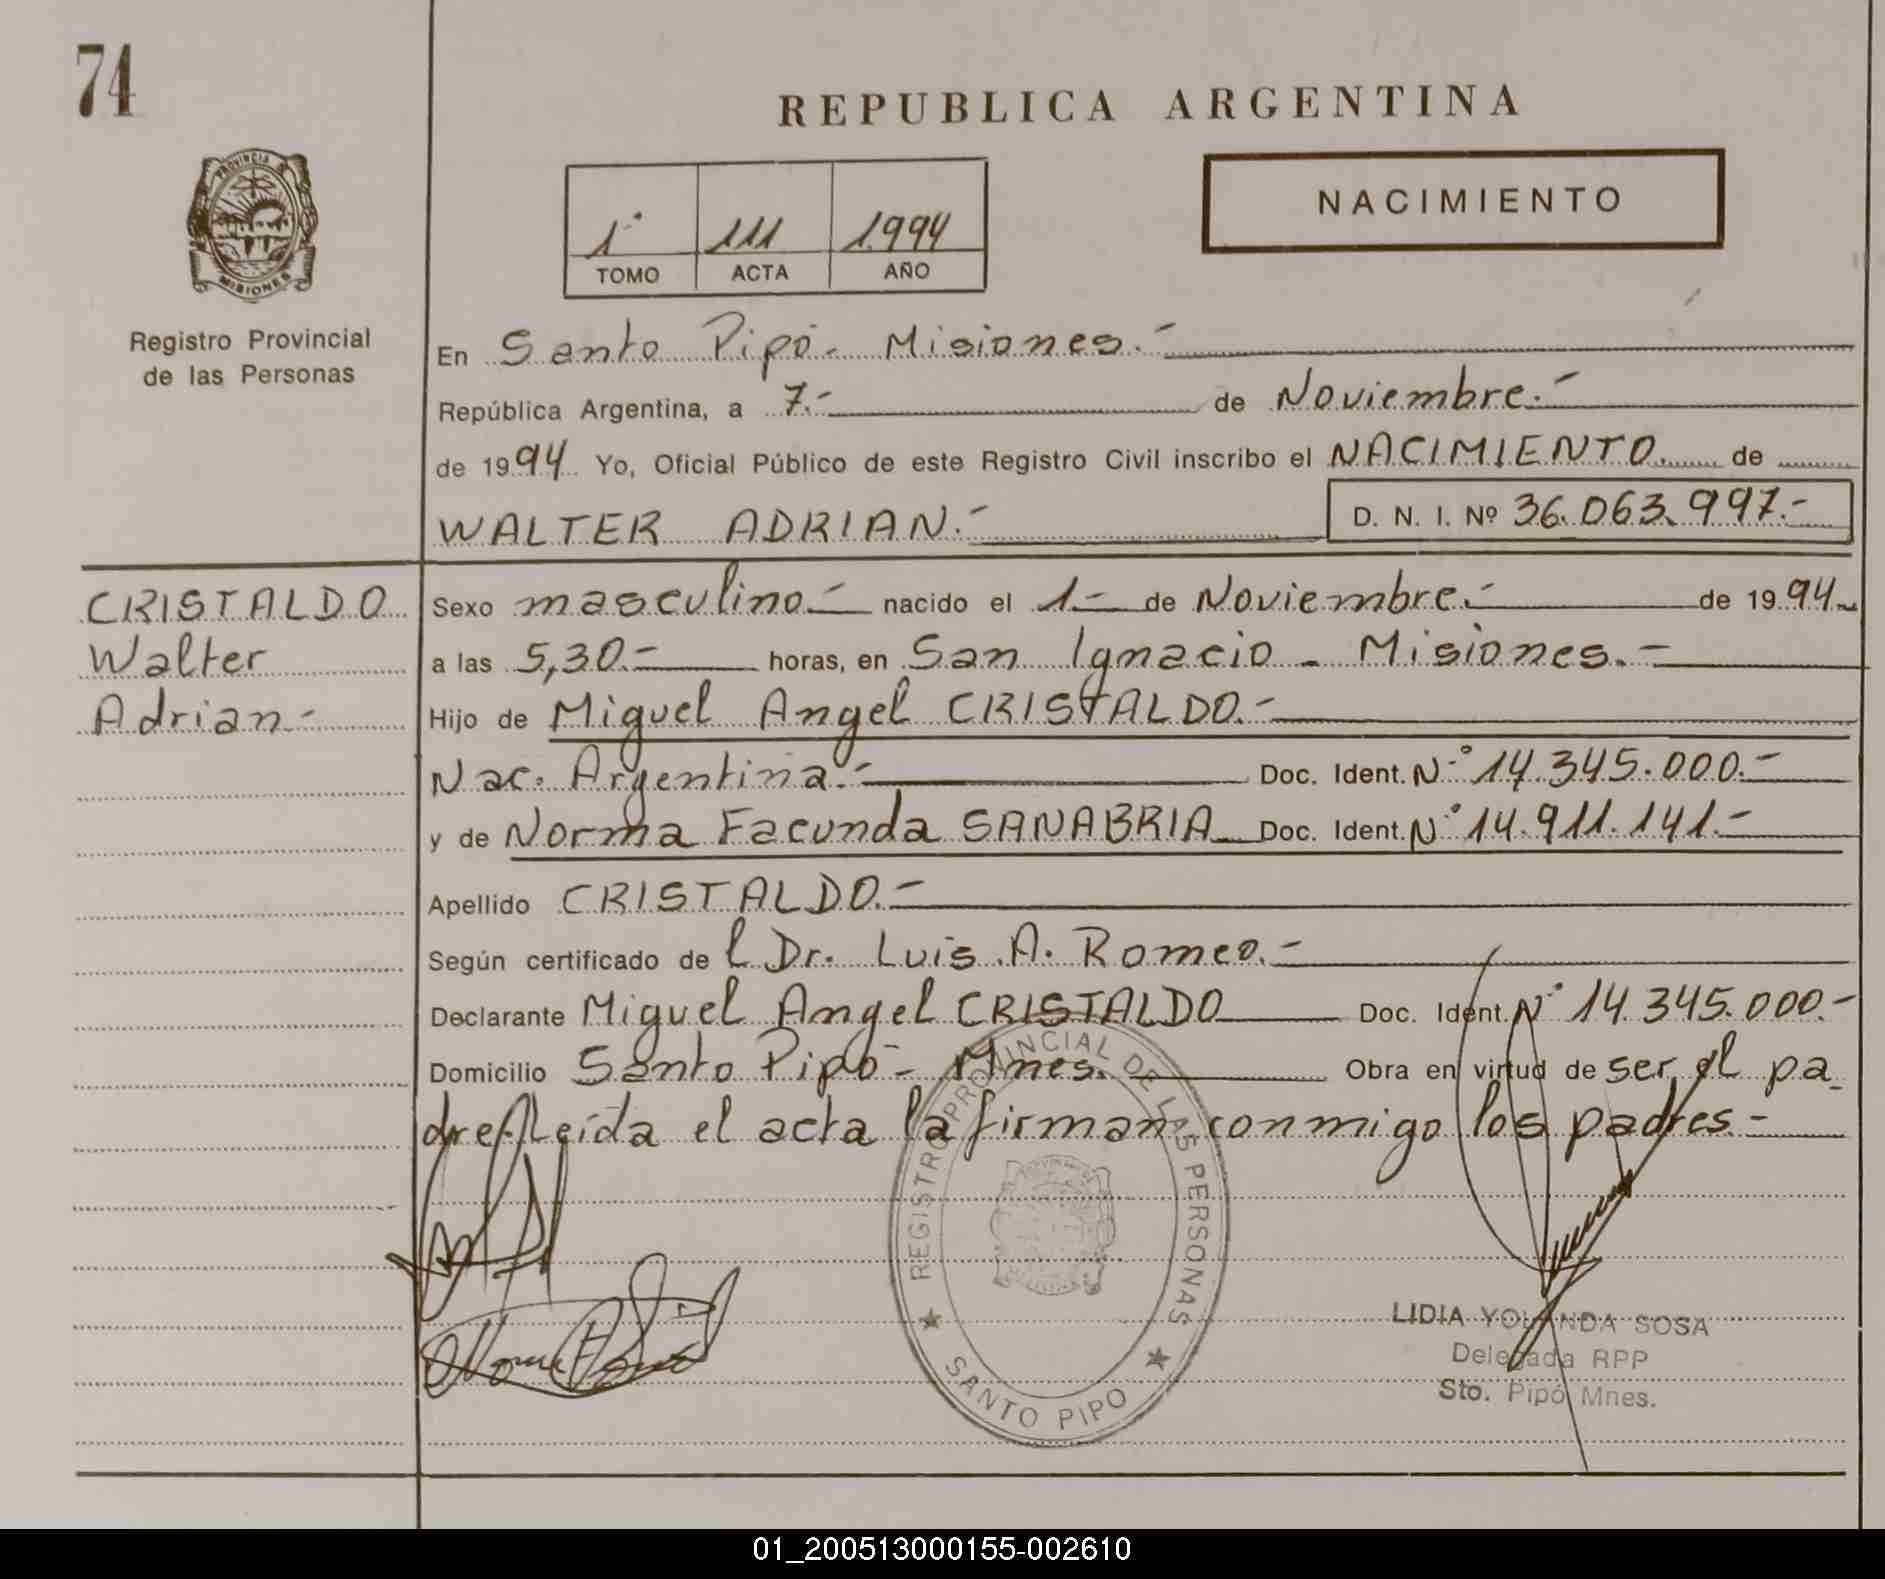 74
REPUBLICA ARGENTINA
PROVINCIA
MISIONES
1° 111 1994
TOMO ACTA AÑO
NACIMIENTO
Registro Provincial
de las Personas
En Santo Pipó - Misiones.-
República Argentina, a 7.- de Noviembre.-
de 1994 Yo, Oficial Público de este Registro Civil inscribo el NACIMIENTO de
WALTER ADRIAN.- D. N. I. Nº 36.063.997.-
CRISTALDO
Walter
Adrian-
Sexo masculino.- nacido el 1.- de Noviembre.- de 1994
a las 5,30.- horas, en San Ignacio - Misiones.-
Hijo de Miguel Angel CRISTALDO.-
Nac. Argentina.- Doc. Ident. N° 14.345.000.-
y de Norma Facunda SANABRIA Doc. Ident. N° 14.911.141.-
Apellido CRISTALDO.-
Según certificado del Dr. Luis A. Romeo.-
Declarante Miguel Angel CRISTALDO Doc. Ident. N° 14.345.000.-
Domicilio Santo Pipó - Mnes. Obra en virtud de ser el pa-
dre. Leída el acta la firman conmigo los padres.-
REGISTRO PROVINCIAL DE LAS PERSONAS
SANTO PIPO
LIDIA YOLANDA SOSA
Delegada RPP
Sto. Pipó Mnes.
01_200513000155-002610